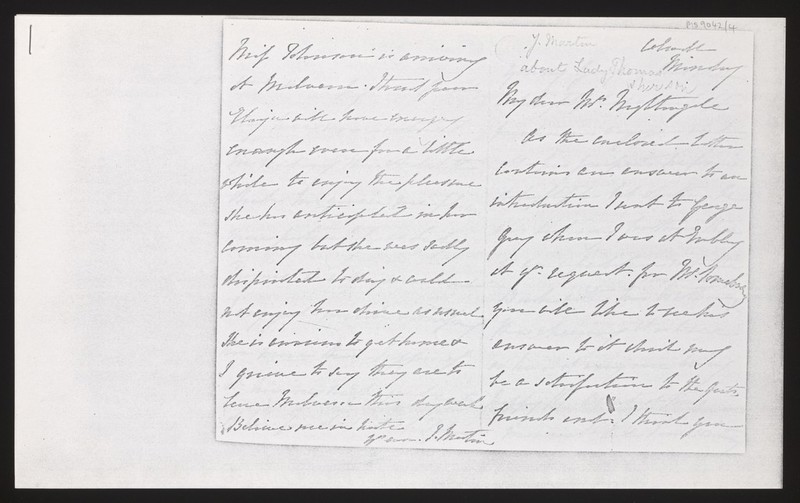 PS9042/4
J. Martin
about Lady Thomas
Monday
My dear Mr. Nightingale
As the enclosed letter
contains an answer to an
introduction I sent to George
Grey when I was at
at yr. request for Mr.
you will like to see his
answer to it which may
be a satisfaction to the
friends and I think you
Miss Johnson is arriving
at Malvern. I trust poor
Eliza will have energy
enough even for a little
while to enjoy the pleasure
she has anticipated in her
coming but she was sadly
dispirited today & could
not enjoy her drive as usual
She is anxious to get home &
I grieve to say they are to
leave Malvern this day week
Believe me in haste
yrs ever J. Martin